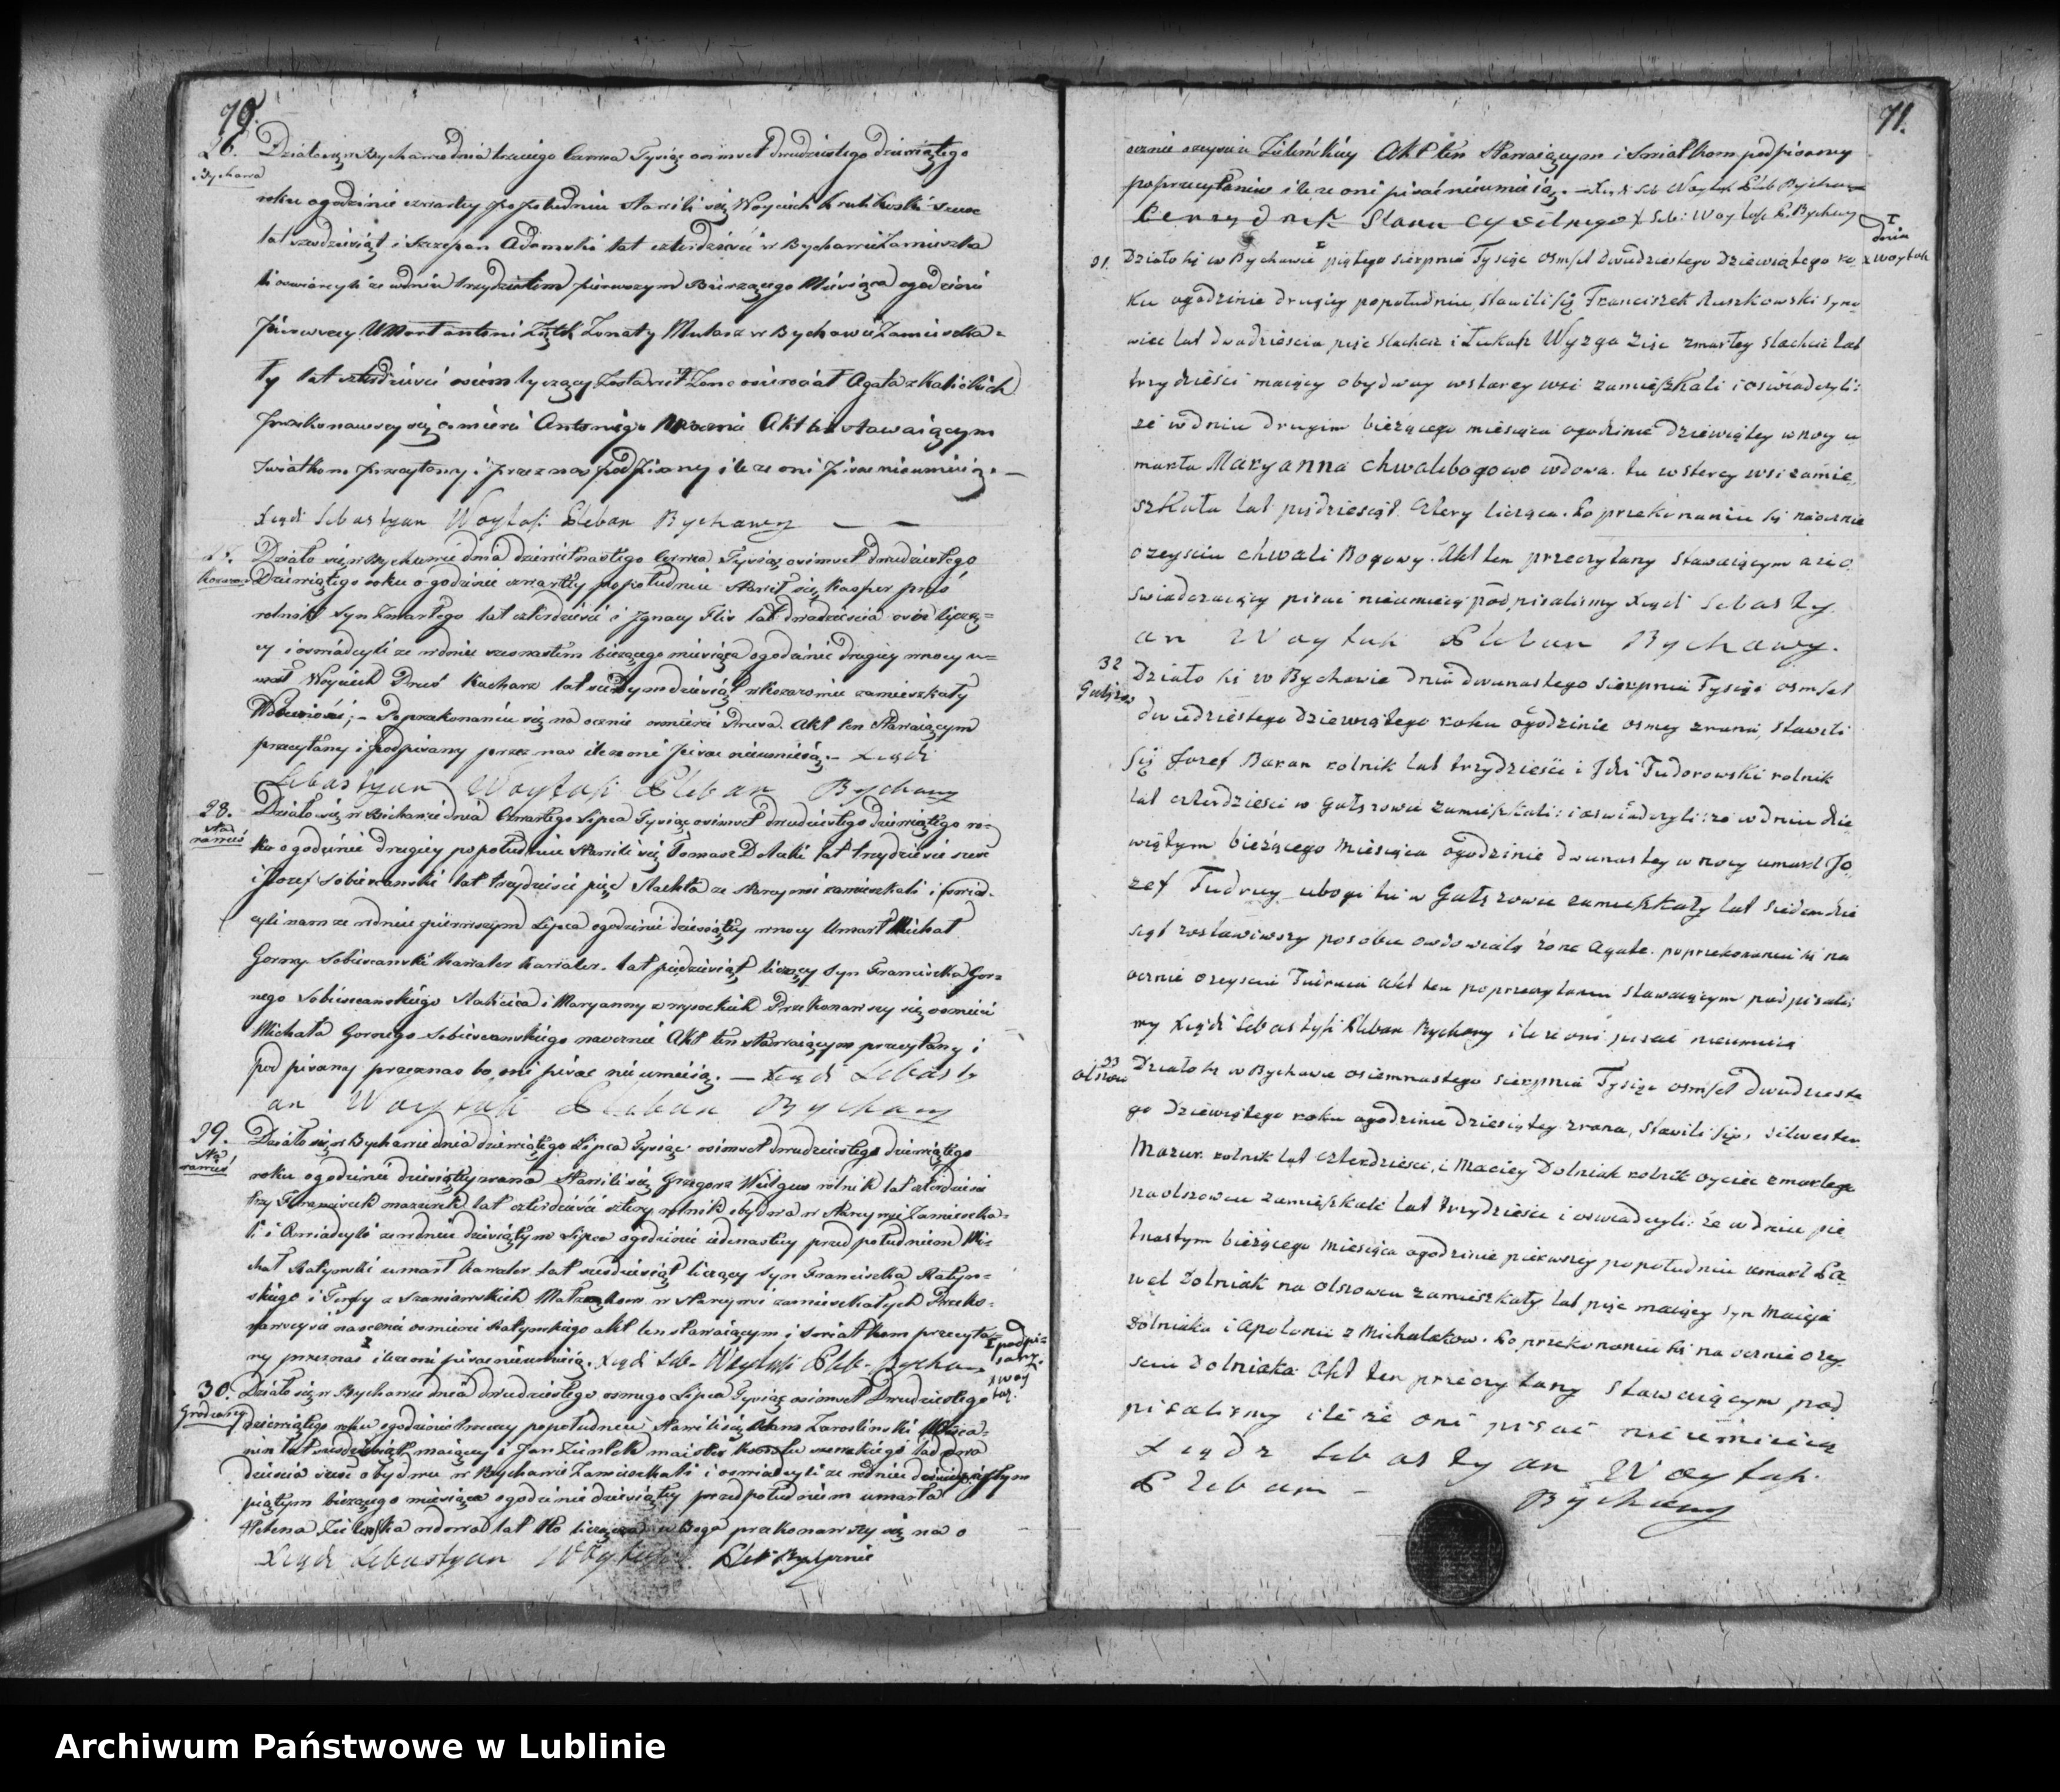 70.
26.
Bychawa
Działo się w Bychawie dnia trzeciego Czerwca Tysiąc osimset dwudziestego dziewiątego
roku ogodzinie czwartey popołudniu stawili się Woyciech Krulikoski szewc
lat szesdziesiąt i Szczepan Adamski lat czterdzieści w Bychawie Zamieszka
li oswiarczyli ze wdniu trzydziestem pierwszym Bierzącego Miesiąca ogodzinie
pierwszey Umarł Antoni Ziętek Zonaty Mularz w Bychawie Zamieszka-
ły lat czterdzieści osiem lyczący Zostawił Zone osierociał Agata z Kalickich
Przekonawszy się o mierci Antoniego Akt ten stawaiącym
Swiatkom przeczytany i przez nas podpisany ile ze oni pisac nieumieią. —
Xiądz Sebastyan Woytasi Pleban Bychawy — —
27.
Działo się w Bychawie dnia dziewietnastego Czerwca Tysiąc osimset dwudziestego
Dziewiątego roku ogodzinie czwartey popołudniu stawił się Kasper pruś
rolnik syn Zmarłego lat czterdzieści i Jgnacy Flis lat dwadziescia osim liczą=
cy i oswiadczyli ze wdniu szesnastem bierzącego miesiąca ogodzinie drugiey wnocy u=
marł Woyciech Pruś Kucharz lat siedymdziesiąt w Kozarowie zamieszkały
Włosciość; - Poprzekonaniu się na ocznie osmierci Prusa Akt ten stawaiącym
przeczytany i podpisany przez nas ile ze oni pisac nieumieią. — Xiądz
Sebastyan Woytasi Pleban Bychawy
28.
Sta
rawieś
Działo się w Bichawie dnia Czwartego Lipca Tysiąc osimset dwudziestego dziewiątego ro=
ku ogodzinie drugiey popołudniu stawili się Tomasz Dolecki lat trzydziesci szesc
i Jozef Sobieszanski lat trzydziesci pięc Slachta ze starey wsi zamieszkali i oswiad-
czyli nam ze wdniu pierwszym Lipca ogodzinie dziesiątey wnocy Umarł Michał
Gorny Sobieszanski Kawaler Kawaler. lat piędziesiąt liczący syn Franciszka Gor=
nego Sobieszanskiego Slahcica i Maryanny z wysockich Przekonawszy się osmierci
Michała Gornego Sobieszanskiego naocznie Akt ten stawaiącym przeczytany i
podpisany przeznas bo oni pisac nieumieią. — Xiądz Sebasty
an Woytasi Pleban Bychawy
29.
Sta
rawieś
Działo się w Bychawie dnia dziewiątego Lipca Tysiąc osimset dwudziestego dziewiątego
roku ogodzinie dziewiątey zrana Stawili się Grzegorz Weilgus rolnik lat czterdzieści
trzy Franciszek mazurek lat czterdzieści cztery rolnik obydwa w Starey wsi Zamieszka=
li i Oswiadczyli ze wdniu dziewiątym Lipca ogodzinie iedenastey przed południem Mi=
chał Ratynski umarł Kawaler lat szesdziesiąt liczący syn Franciszka Ratyn=
skiego i Teresy z Szaniawskich Małzonkow w starey wsi zamieszkałych Przeko=
nawszy się naocznie osmierci Ratynskiego akt ten stawaiącym i swiatkom przeczyta
ny przeznas ile ze oni pisac nieumieią. Xiądz Seb. Woytasi Pleb. Bychaw
I podpi=
sany.
30.
Grodzany
Działo się w Bychawie dnia dwudziestego osmego Lipca Tysiąc osimset Dwudziestego
dziewiątego roku ogodzinie trzeciey popołudniu Stawili się Adam Zaroslinski Miesca=
nin lat szesdziesiąt maiący i Jan Zieintek maister Konsztu szewskiego lat dwa
dziescia szesc obydwa w Bychawie Zamieszkali i oswiadczyli ze wdniu
piątym bierzącego miesiąca ogodzinie dziesiątey przed południem umarła
Helena Zielinska wdowa lat sto licząca w Bogu przekonawszy się na o
Xiądz Sebastyan Woytasi Pleb Bychawie
71.
ocznie ozeysciu Zilinskiey Akt ten Stawaiącym i Swiatkom podpisany
poprzeczytaniu ile ze oni pisać nieumieią. — Xiądz Seb Woytas Pleb Bychaw
Perzydnik Stanu Cywilnego X Seb: Woytasi P. Bychawy
I
dnia
x Woytasi
31.
Działo się w Bychawie piątego Sierpnia Tysiąc osmset dwudziestego Dziewiątego ro-
ku ogodzinie drugiey popołudniu, stawili się Franciszek Ruszkowski syno
wiec lat dwadziescia pięc Slachcic i Łukasz Wyzga Zięc zmarłey slachcic lat
trzydzieści maiący obydway wstarey wsi zamieszkali i oświadczyli:
że wdniu drugim bieżącego miesiąca ogodzinie dziewiątey wnocy u
marła Maryanna Chwalibogowo wdowa. tu w starey wsi zamie
szkała lat piędziesiąt cztery licząca. Po przekonaniu się naocznie
ozeysciu Chwali Bogowy. Akt ten przeczytany stawaiącym a ze o
swiadczaiący pisać nieumieią podpisalismy Xiądz Sebasty
an Woytasi Pleban Bychawy.
32
Działo się w Bychawie dnia dwunastego Sierpnia Tysiąc osmset
dwudziestego dziewiątego roku ogodzinie osmey zrana, stawili
się Jozef Baran rolnik lat trzydzieści i Jdzi Tudorowski rolnik
lat czterdzieści w Gałęzowie zamieszkali: i oswiadczyli: że wdniu dzie
wiątym bieżącego miesiąca ogodzinie dwunastey wnocy umarł Jo
zef Tudruy ubogi tu w Gałęzowie zamieszkały lat siedemdzie
siąt zostawiwszy posobie owdowiałą żone Agate. poprzekonaniu się na
ocznie ozeysciu Tudruia akt ten poprzeczytaniu stawaiącym podpisali
my Xiądz Sebastyń Pleban Bychawy ile ze oni pisac nieumieią
33
olszow
Działo się w Bychawie osiemnastego Sierpnia Tysiąc osmset dwudzieste
go Dziewiątego roku ogodzinie dziesiątey zrana, Stawili się, Silwester
Mazur. rolnik lat czterdzieści, i Maciey Dolniak rolnik oyciec zmarłego
na olszowcu zamieszkali lat trzydzieści i oswiadczyli: że w dniu pię
tnastym bieżącego miesiąca ogodzinie pierwszey popołudniu umarł Pa
weł Dolniak na Olszowcu zamieszkały lat pięc maiący syn Macieja
Dolniaka i Apolonii z Michalakow. Po przekonaniu się na ocznie ozey
sciu Dolniaka Akt ten przeczytany stawaiącym pod
pisalismy ile że oni pisać nieumieią
Xiądz Sebastyan Woytasi.
Pleban -
Bychawy
Archiwum Państwowe w Lublinie